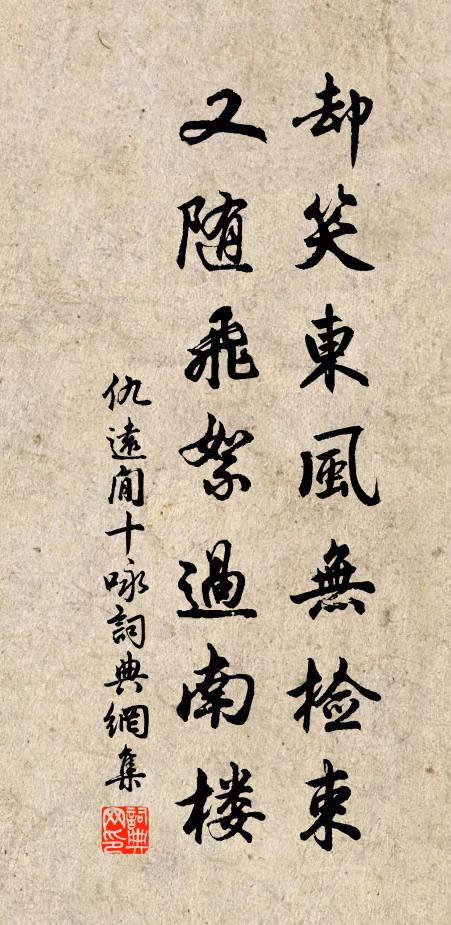 却笑東風無檢束
又随飛絮過南楼
仇遠閒十咏詞典網集
詞典網印